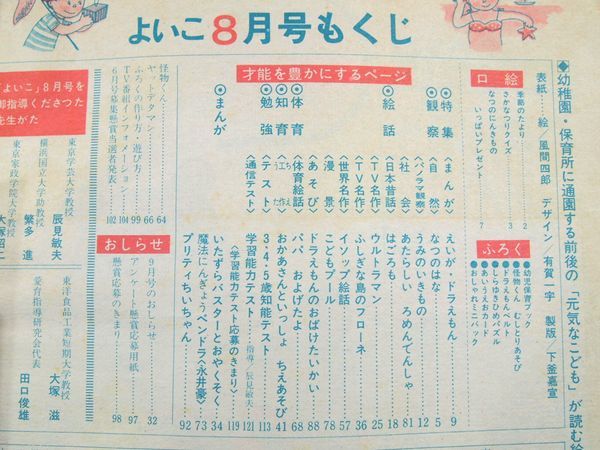 よいこ8月号もくじ
◆幼稚園・保育所に通園する前後の「元気なこども」が読む絵
表紙…絵/風間四郎 デザイン/有賀一宇 製版/下釜嘉宣
口絵
季節のたより 2
さかなつりクイズ 3
なつのにんきもの
いっぱいプレゼント 7
ふろく
●幼児保育ブック
●怪物くん むしとりあそび
●ドラえもんベルト
●しらゆきひめパズル
●あいうえおカード
●おしゃれミニバック
才能を豊かにするページ
◎特集〈まんが〉えいが・ドラえもん 9
◎観察〈自然〉なつのはな 5
〈パノラマ観察〉うみのいきもの 12
〈社会〉あたらしい ろめんでんしゃ 81
◎絵話〈日本昔話〉はごろも 18
〈TV名作〉ウルトラマン 25
〈TV名作〉ふしぎな島のフローネ 36
〈世界名作〉イソップ絵話 57
〈漫景〉こどもプール 78
〈あそび〉ドラえもんのおばけたいかい 88
◎体育〈体育絵話〉パパ およげたよ 68
◎知育〈ちえ工作〉おかあさんといっしょ ちえあそび 41
◎勉強〈テスト〉3・4・5歳知能テスト 113
〈通信テスト〉学習能力テスト 指導・辰見敏夫 121
〈学習能力テスト応募のきまり〉119
◎まんが いたずらバスターとおやくそく 34
魔法にんぎょうペンドラ〈永井豪〉73
プリティちいちゃん 92
怪物くん 64
ヤットデタマン 66
ふろくの作り方・遊び方 99
TV番組インフォメーション 104
6月号募集懸賞当選者発表 102
おしらせ
9月号のおしらせ 32
アンケート懸賞応募用紙 97
懸賞応募のきまり 98
「よいこ」8月号を
御指導くださった
先生がた
東京学芸大学教授 辰見敏夫
横浜国立大学助教授 繁多進
東京家政学院大学教授 大塚昭二
東洋食品工業短期大学教授 大塚滋
愛育指導研究会代表 田口俊雄